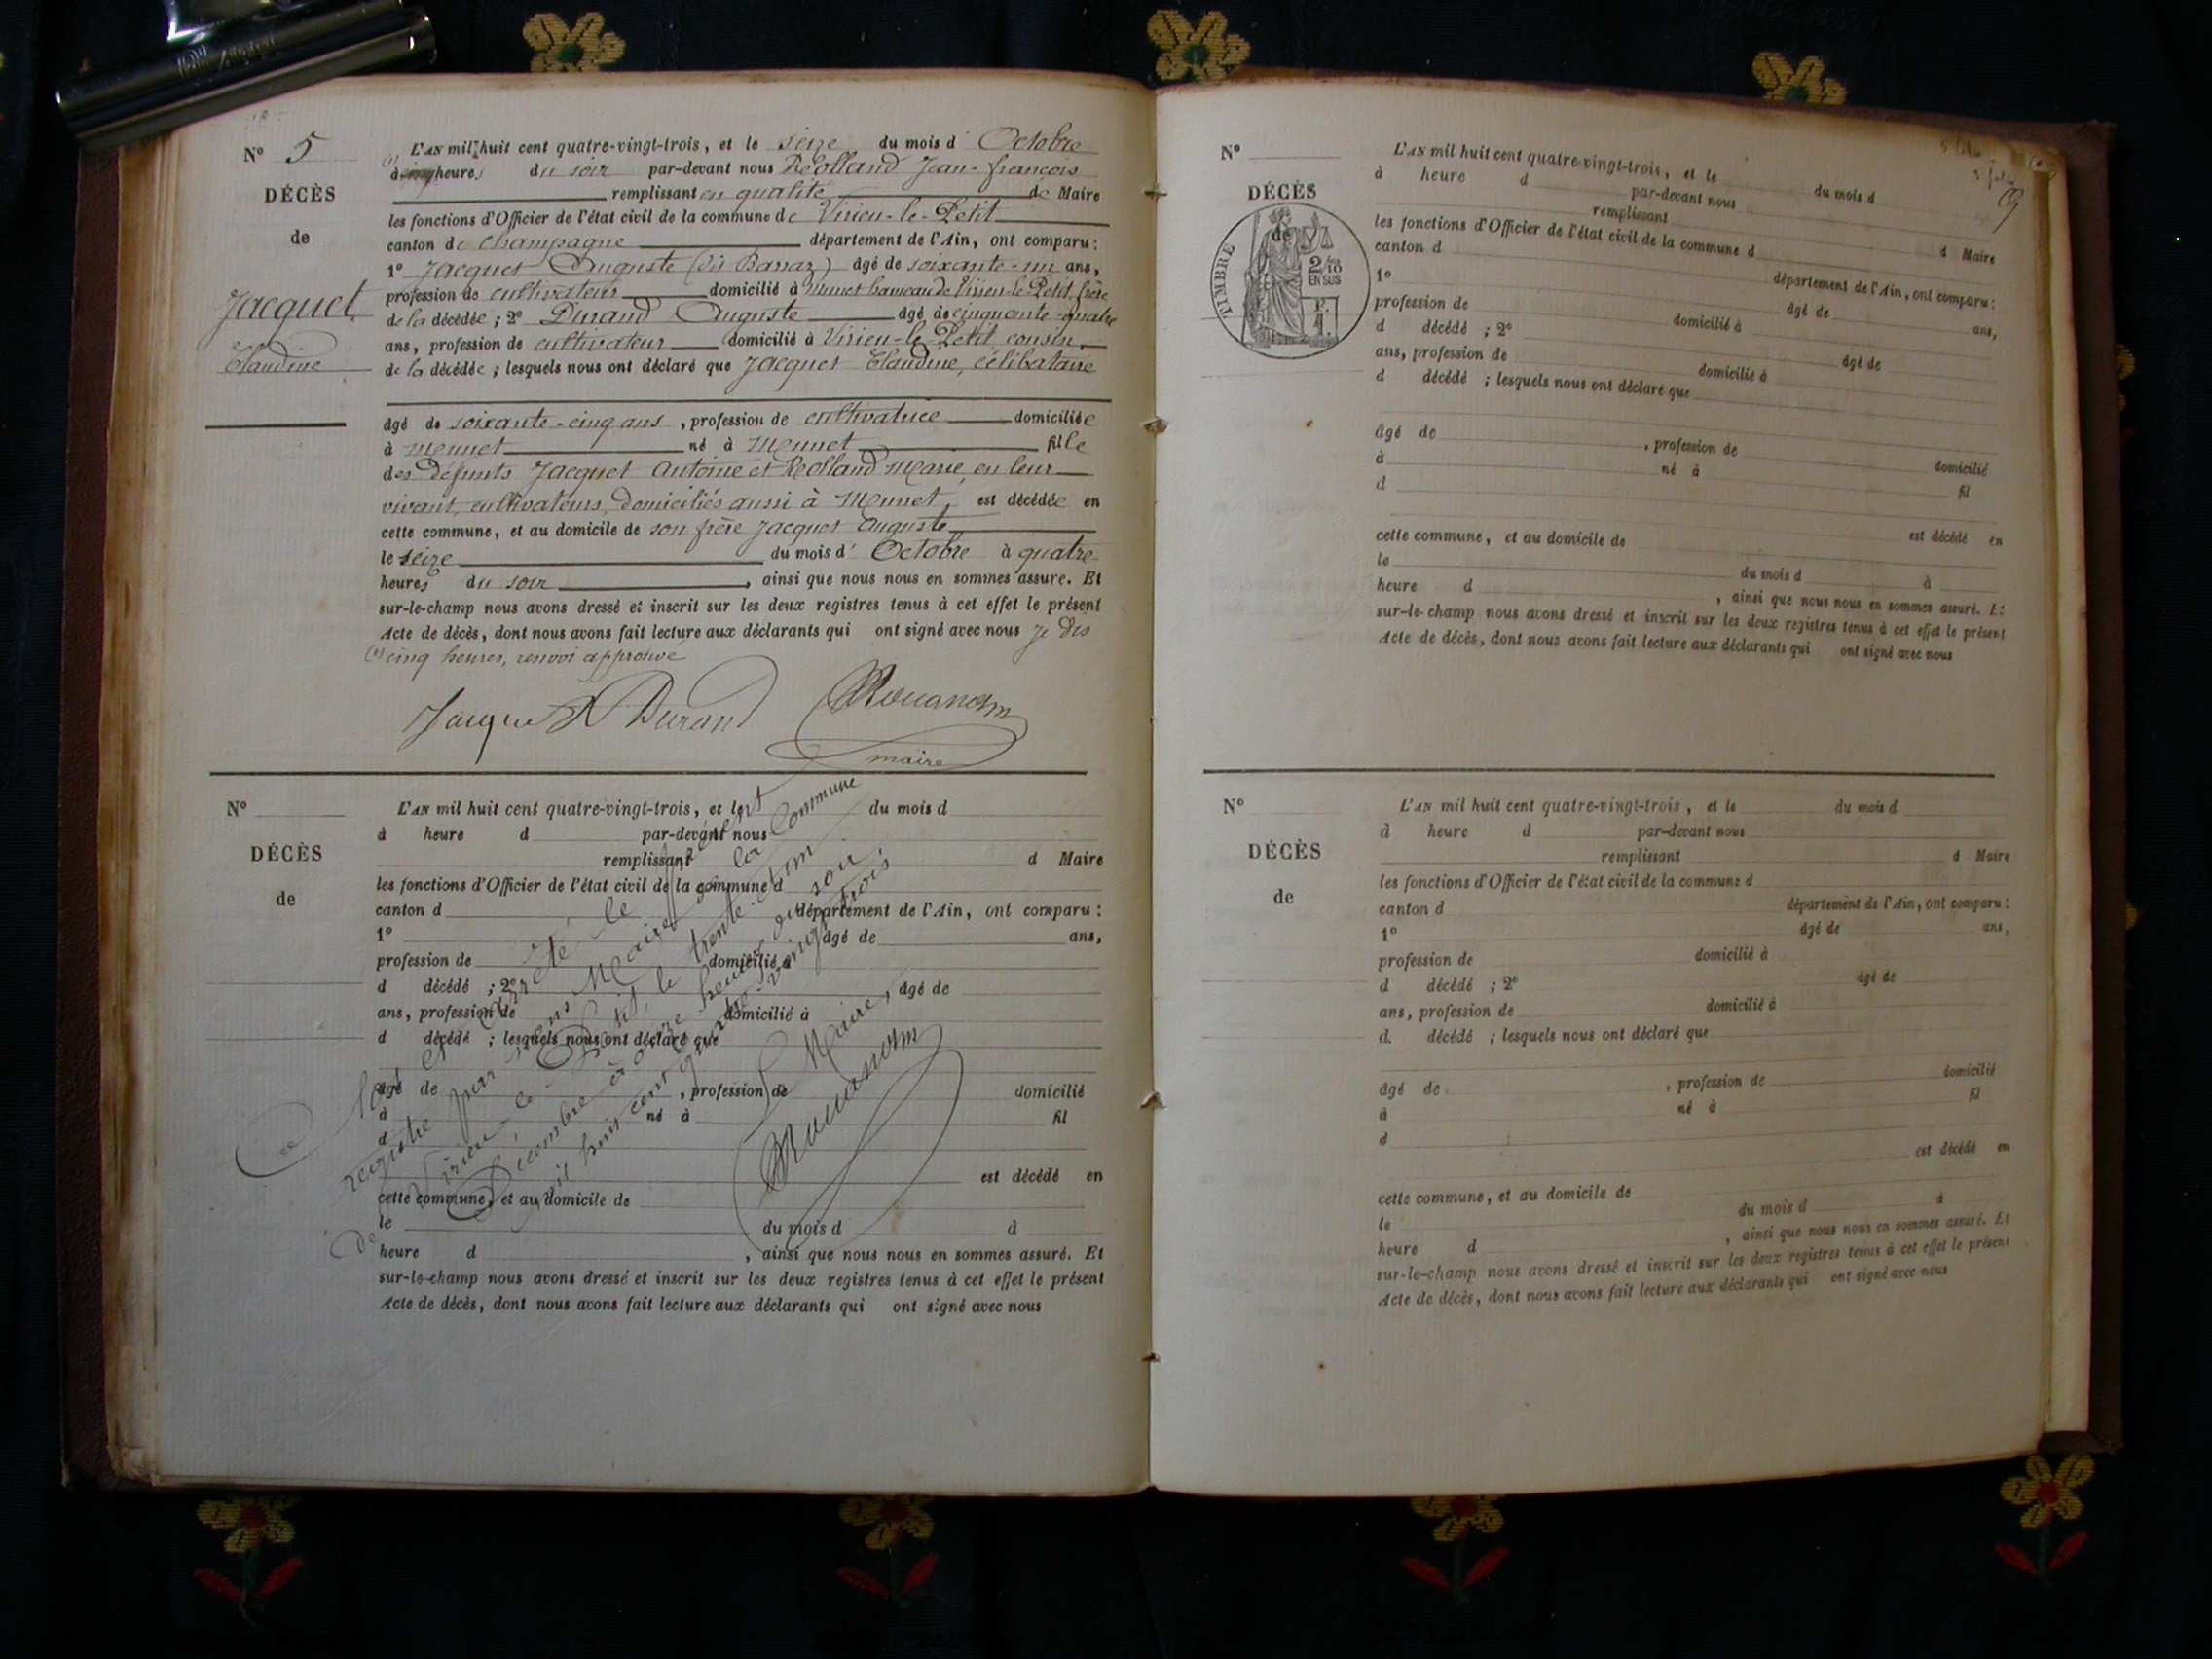 N° 5
DÉCÈS
de
Jacquet
Claudine
L'AN mil huit cent quatre-vingt-trois, et le seize du mois d' Octobre
(1) à heures du soir par-devant nous Réolland Jean-françois
remplissant en qualité de Maire
les fonctions d'Officier de l'état civil de la commune de Virieu-le-Petit
canton de Champagne département de l'Ain, ont comparu :
1° Jacquet Auguste (dit Barraz) âgé de soixante-un ans,
profession de cultivateur domicilié à Munet hameau de Virieu-le-Petit, frère
de la décédée ; 2° Durand Auguste âgé de cinquante-quatre
ans, profession de cultivateur domicilié à Virieu-le-Petit, cousin
de la décédée ; lesquels nous ont déclaré que Jacquet Claudine, célibataire
âgé de soixante-cinq ans, profession de cultivatrice domiciliée
à Munet né à Munet fille
des défunts Jacquet Antoine et Réolland Marie, en leur
vivant, cultivateurs, domiciliés aussi à Munet, est décédée en
cette commune, et au domicile de son frère Jacquet Auguste
le seize du mois d' Octobre à quatre
heures du soir, ainsi que nous nous en sommes assuré. Et
sur-le-champ nous avons dressé et inscrit sur les deux registres tenus à cet effet le présent
Acte de décès, dont nous avons fait lecture aux déclarants qui ont signé avec nous je dis
(1) cinq heures, renvoi approuvé
Jacquet A Durand
maire
N°
DÉCÈS
de
L'AN mil huit cent quatre-vingt-trois, et le du mois d
à heure d par-devant nous
remplissant d Maire
les fonctions d'Officier de l'état civil de la commune d
canton d département de l'Ain, ont comparu :
1° âgé de ans,
profession de domicilié à
d décédé ; 2° âgé de
ans, profession de domicilié à
d décédé ; lesquels nous ont déclaré que
âgé de , profession de domicilié
à né à fil
d
est décédé en
cette commune, et au domicile de
le du mois d à
heure d , ainsi que nous nous en sommes assuré. Et
sur-le-champ nous avons dressé et inscrit sur les deux registres tenus à cet effet le présent
Acte de décès, dont nous avons fait lecture aux déclarants qui ont signé avec nous
arrêté le présent
registre par nous Maire de la Commune
de Virieu-le-Petit, le trente-un
Décembre à onze heures du soir,
mil huit cent quatre-vingt-trois
Le Maire,
N°
DÉCÈS
de
TIMBRE
2/10
EN SUS
L'AN mil huit cent quatre-vingt-trois, et le du mois d
à heure d par-devant nous
remplissant d Maire
les fonctions d'Officier de l'état civil de la commune d
canton d département de l'Ain, ont comparu :
1° âgé de ans,
profession de domicilié à
d décédé ; 2° âgé de
ans, profession de domicilié à
d décédé ; lesquels nous ont déclaré que
âgé de , profession de domicilié
à né à fil
d
est décédé en
cette commune, et au domicile de
le du mois d à
heure d , ainsi que nous nous en sommes assuré. Et
sur-le-champ nous avons dressé et inscrit sur les deux registres tenus à cet effet le présent
Acte de décès, dont nous avons fait lecture aux déclarants qui ont signé avec nous
N°
DÉCÈS
de
L'AN mil huit cent quatre-vingt-trois, et le du mois d
à heure d par-devant nous
remplissant d Maire
les fonctions d'Officier de l'état civil de la commune d
canton d département de l'Ain, ont comparu :
1° âgé de ans,
profession de domicilié à
d décédé ; 2° âgé de
ans, profession de domicilié à
d. décédé ; lesquels nous ont déclaré que
âgé de , profession de domicilié
à né à fil
d
est décédé en
cette commune, et au domicile de
le du mois d à
heure d , ainsi que nous nous en sommes assuré. Et
sur-le-champ nous avons dressé et inscrit sur les deux registres tenus à cet effet le présent
Acte de décès, dont nous avons fait lecture aux déclarants qui ont signé avec nous